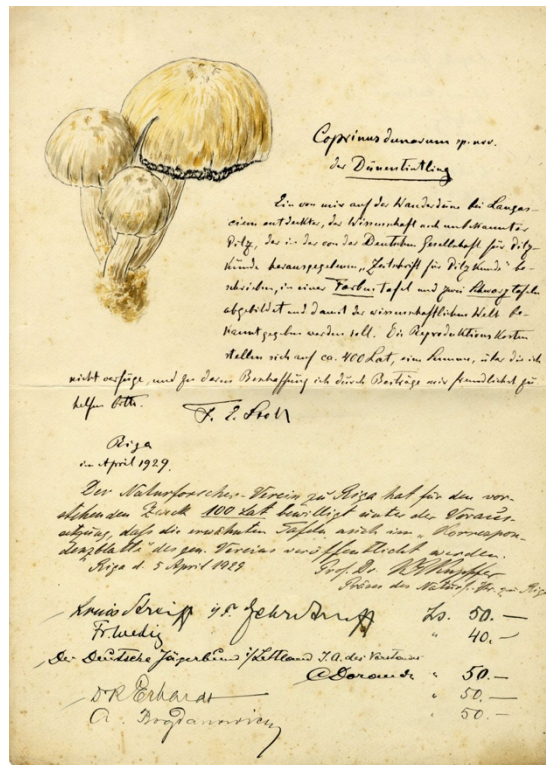 Coprinus dunarum sp. nov.
der Dünentintling
Ein von mir auf der Wanderdüne bei Langas-
ciem entdeckter, der Wissenschaft noch unbekannter
Pilz, der in der von der Deutschen Gesellschaft für Pilz-
kunde herausgegebenen „Zeitschrift für Pilzkunde" be-
schrieben, in einer Farbentafel und zwei Schwarztafeln
abgebildet und damit der wissenschaftlichen Welt be-
kannt gegeben werden soll. Die Reproduktionskosten
stellen sich auf ca. 400 Lat, eine Summe, über die ich
nicht verfüge, und zu deren Beschaffung ich durch Beiträge mir freundlichst zu
helfen bitte.
F. E. Stoll
Riga
im April 1929.
Der Naturforscher-Verein zu Riga hat für den vor-
stehenden Zweck 100 Lat bewilligt unter der Voraus-
setzung, daß die erwähnten Tafeln auch im „Korrespon-
denzblatt" des gen. Vereins veröffentlicht werden.
Riga d. 5 April 1929 Prof. Dr. K. R. Kupffer
Präses des Naturf.-Ver. zu Riga
Ls. 50.—
" 40.—
Der Deutsche Jägerbund i/Lettland I. A. des Vorstandes
" 50.—
Dr R Erhardt " 50.—
A. Bogdanowicz " 50.—